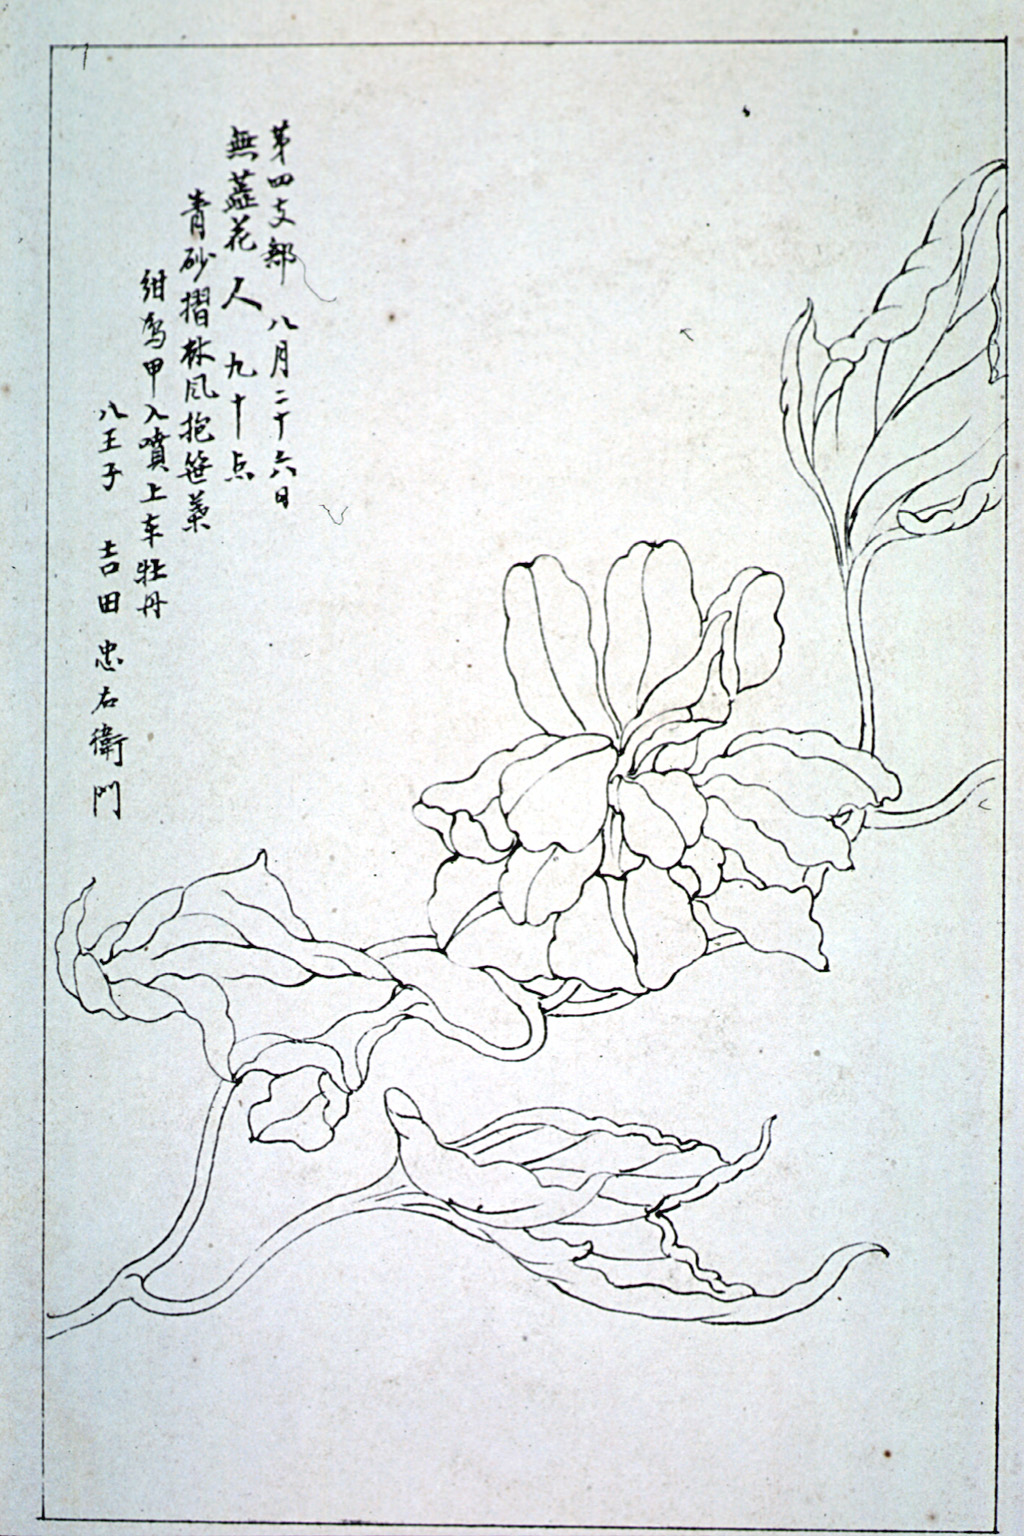 第四支部 八月二十六日
無蕋花 人 九十点
青砂摺林風抱笹葉
紺烏甲入噴上車牡丹
八王子 吉田忠右衛門